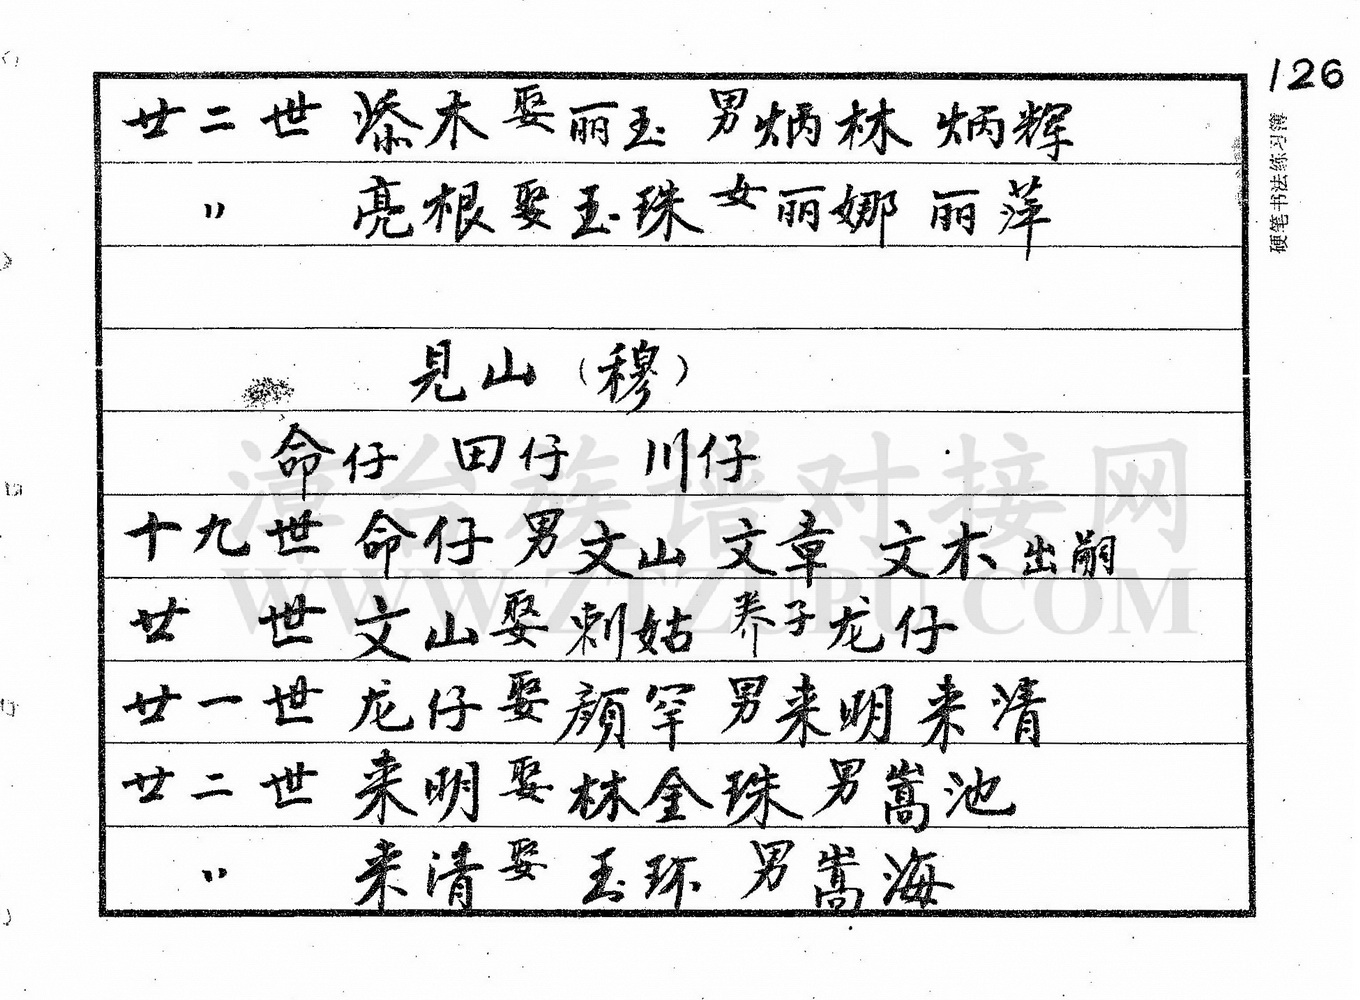 126
硬笔书法练习簿
廿二世 添木 娶 丽玉 男 炳林 炳辉
〃 亮根 娶 玉珠 女 丽娜 丽萍
見山（穆）
命仔 田仔 川仔
十九世 命仔 男 文山 文章 文木 出嗣
廿 世 文山 娶 刺姑 养子 龙仔
廿一世 龙仔 娶 颜罕 男 来明 来清
廿二世 来明 娶 林全珠 男 嵩池
〃 来清 娶 玉环 男 嵩海
漳台族谱对接网
WWW.ZTZUPU.COM